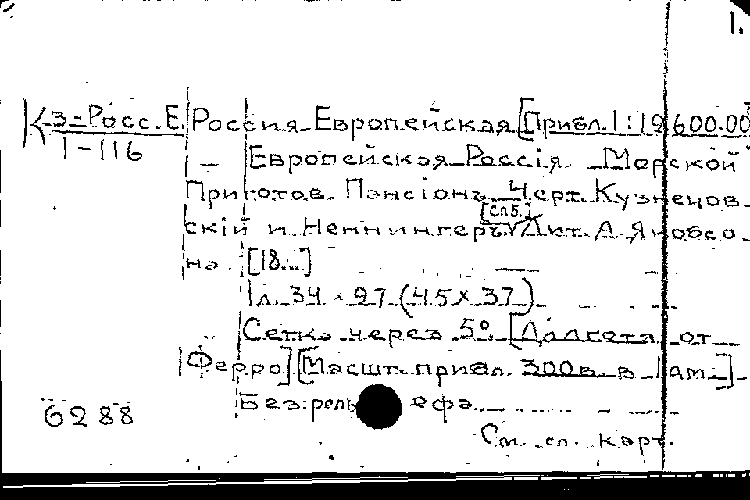 1.
К 3-Росс.Е. Россия Европейская [Прибл. 1:19.600.00
1-116 — Европейская Россія. Морской
Приготов. Пансіонъ. Черт. Кузнецов-
[СПб.]
скій и Неннингеръ. Лит. А. Якобсо-
на. [18...]
1 л. 34 × 27 (45 × 37).
Сетка через 5°. [Долгота от
Ферро] [Масшт. прибл. 300 в. в 1 дм.]
Без рельефа.
6288
См. сл. карт.